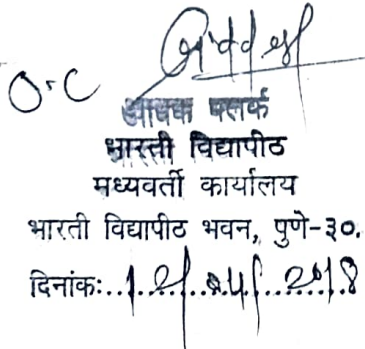 O.C
आवक क्लार्क
भारती विद्यापीठ
मध्यवर्ती कार्यालय
भारती विद्यापीठ भवन, पुणे-३०.
दिनांकः